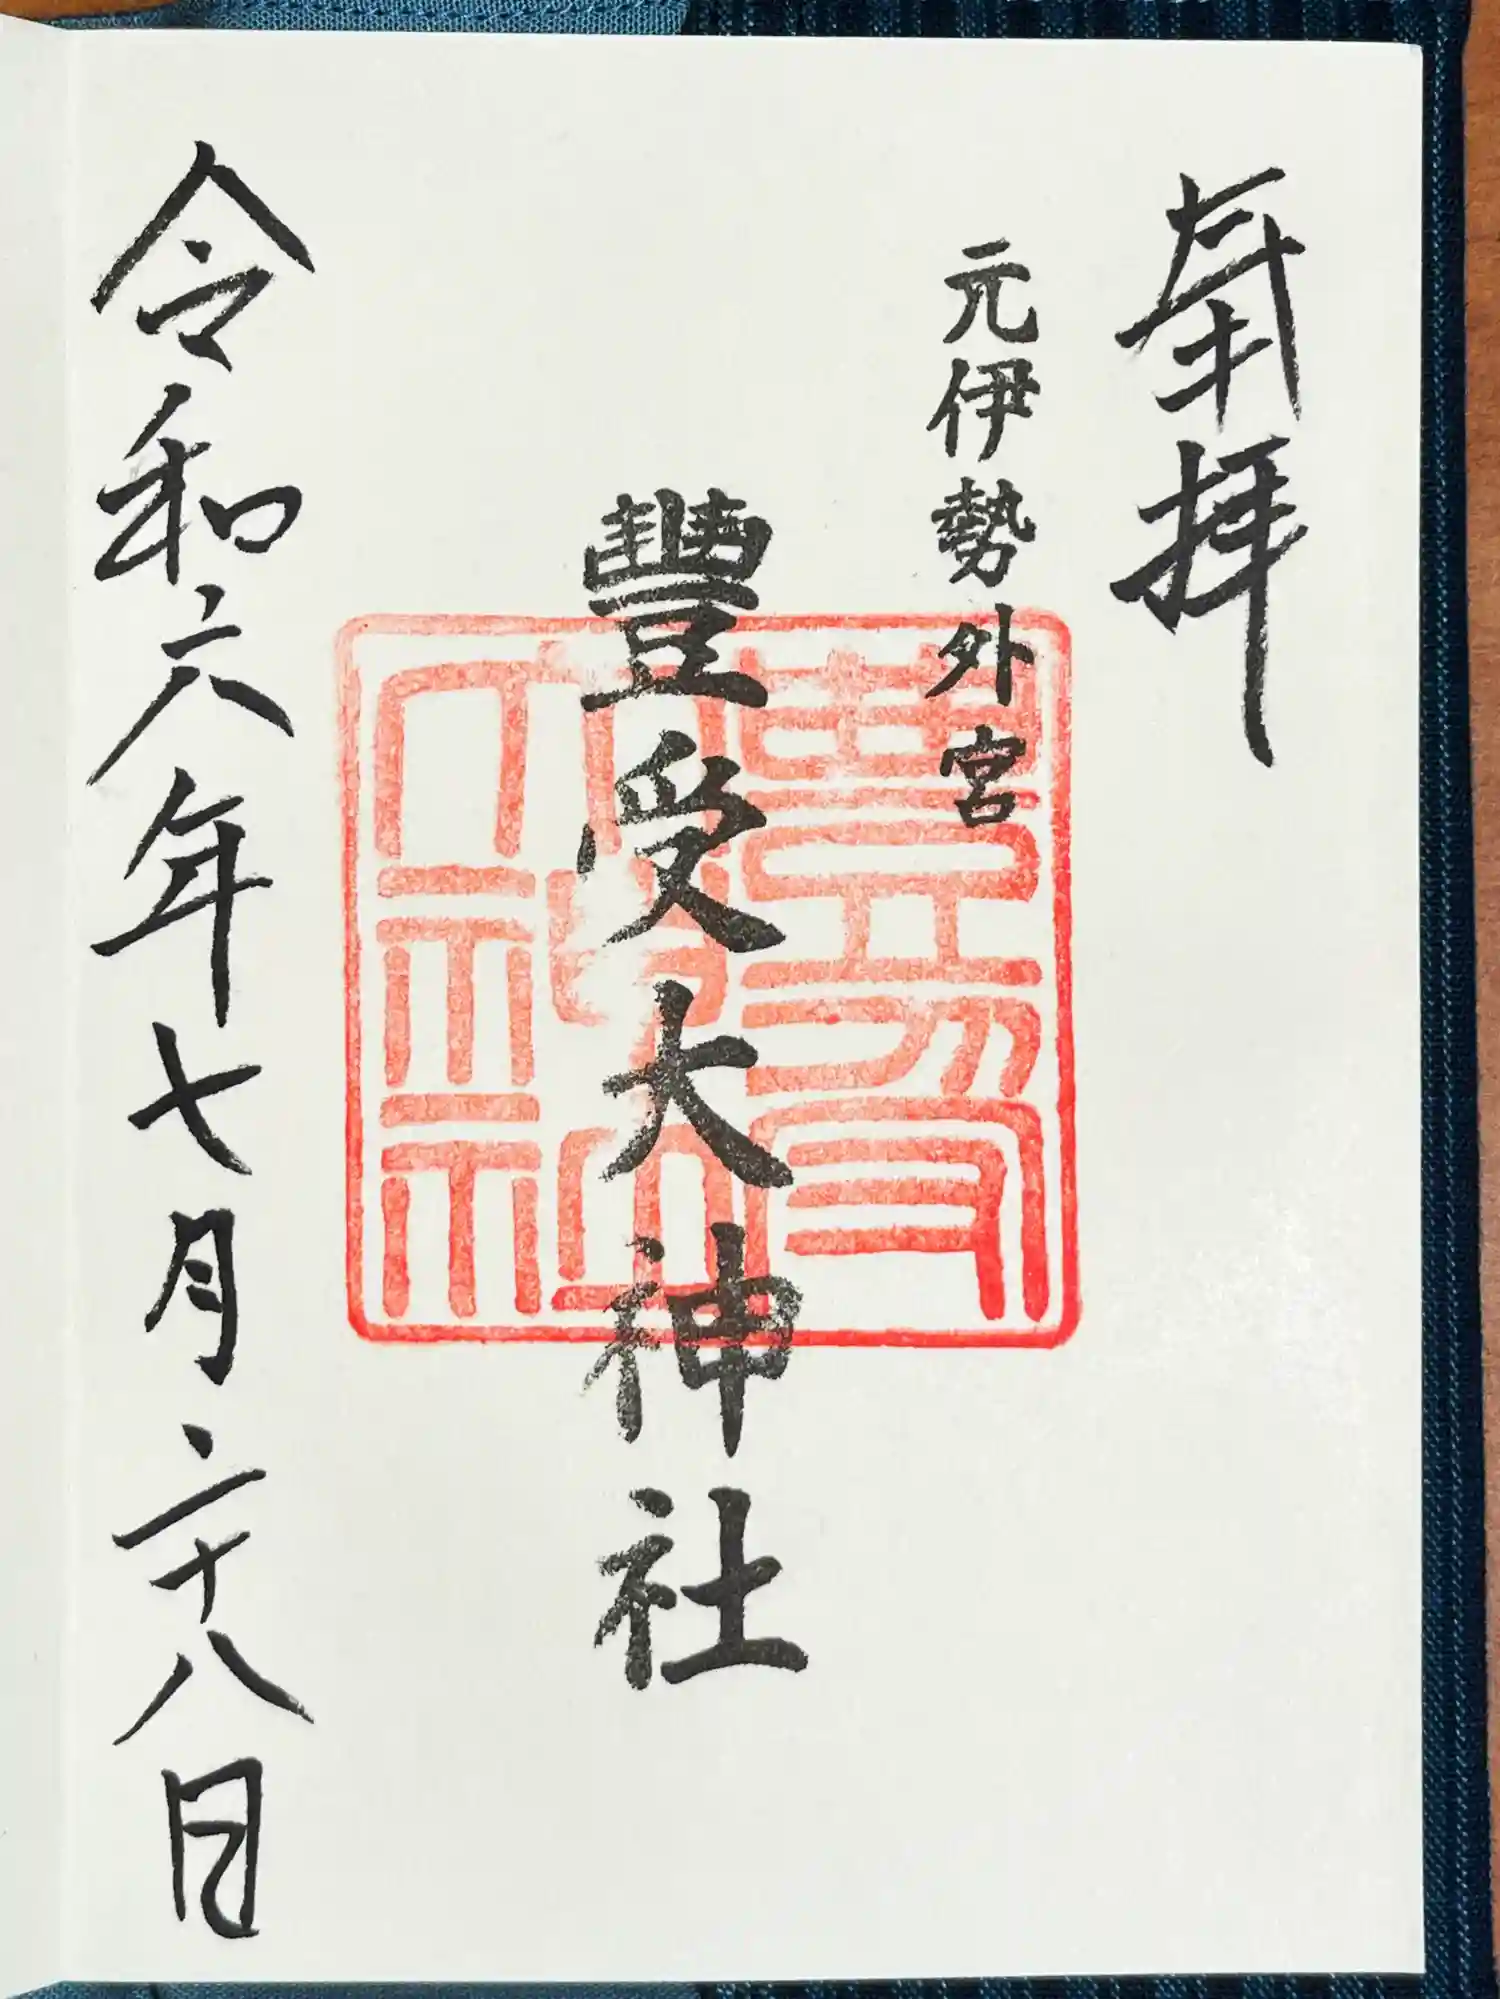 奉拝
元伊勢外宮
豐受大神社
令和六年七月二十八日